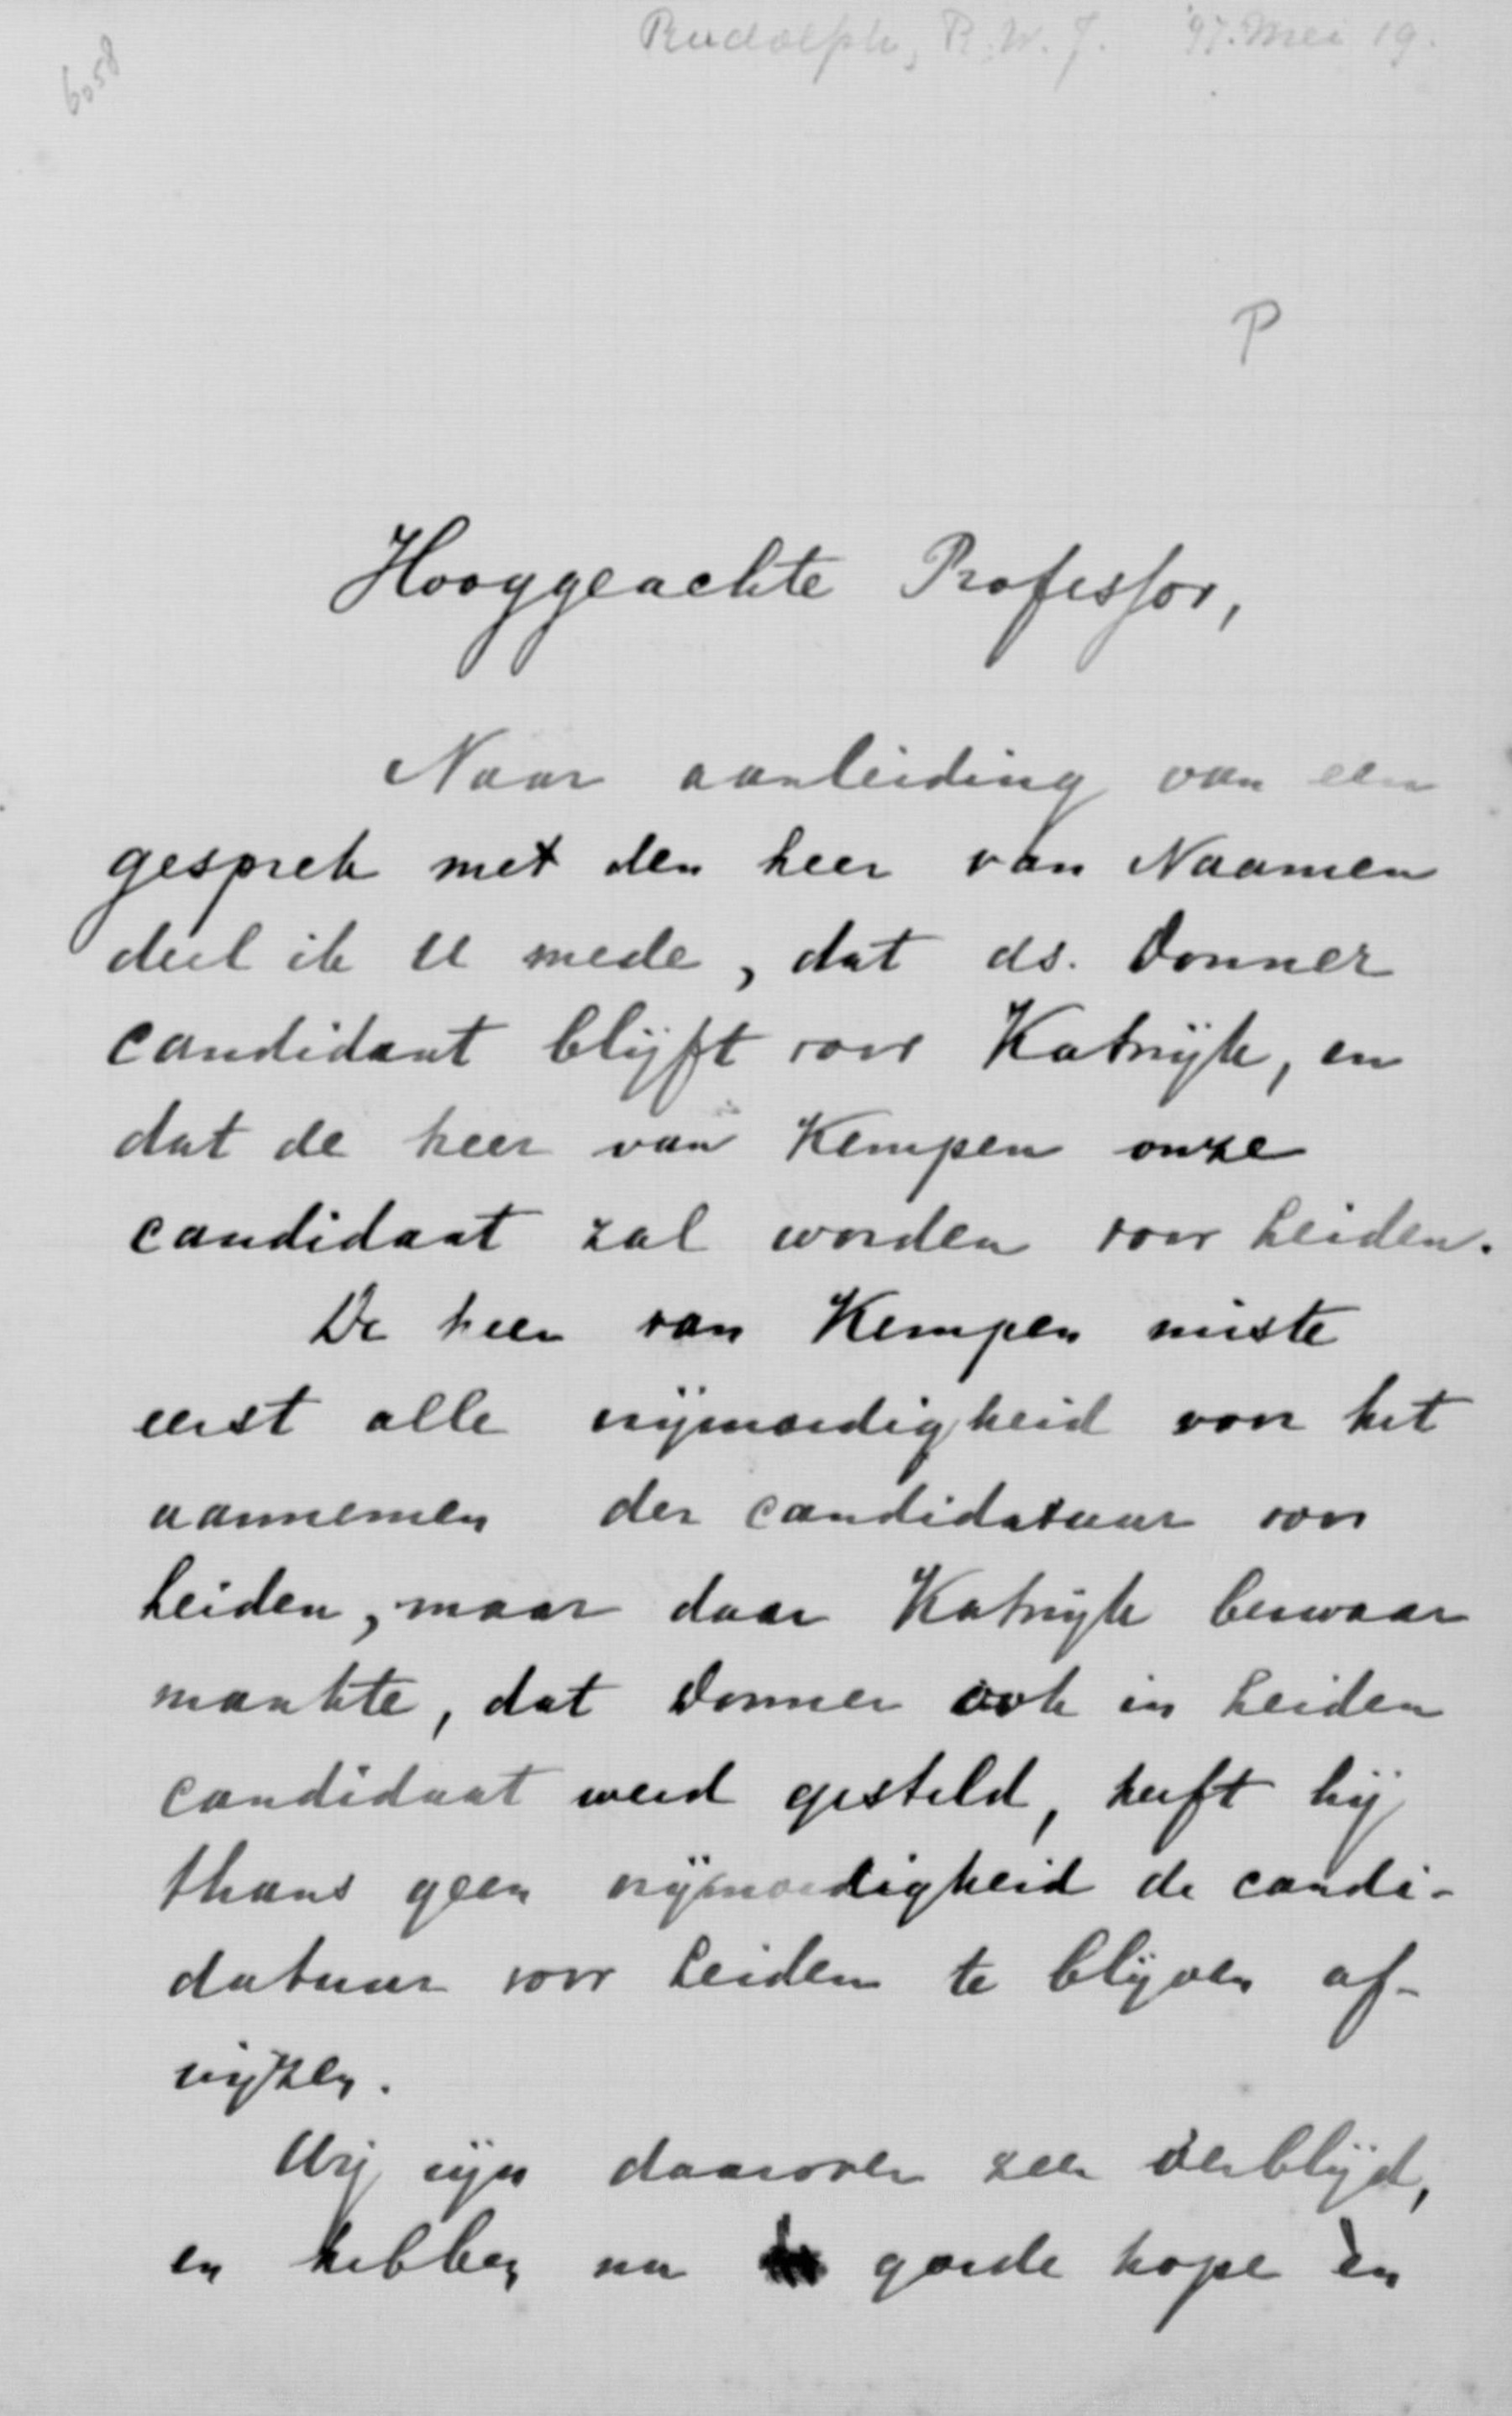 Rudolph, R.W.J. '97. Mei 19.
6058
P
Hooggeachte Professor,
Naar aanleiding van een
gesprek met den heer van Naamen
deel ik U mede, dat ds. Donner
candidaat blijft voor Katwijk, en
dat de heer van Kempen onze
candidaat zal worden voor Leiden.
De heer van Kempen miste
eerst alle vrijmoedigheid voor het
aannemen der candidatuur voor
Leiden, maar daar Katwijk bezwaar
maakte, dat Donner ook in Leiden
candidaat werd gesteld, heeft hij
thans geen vrijmoedigheid de candi-
datuur voor Leiden te blijven af-
wijzen.
Wij zijn daarover zeer verblijd,
en hebben nu goede hope èn